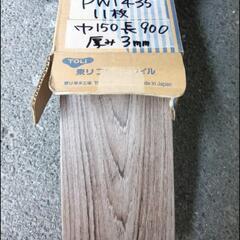 PW1435
11枚
巾150長900
厚み3mm
TOLI
東リ
イル
de in Japan